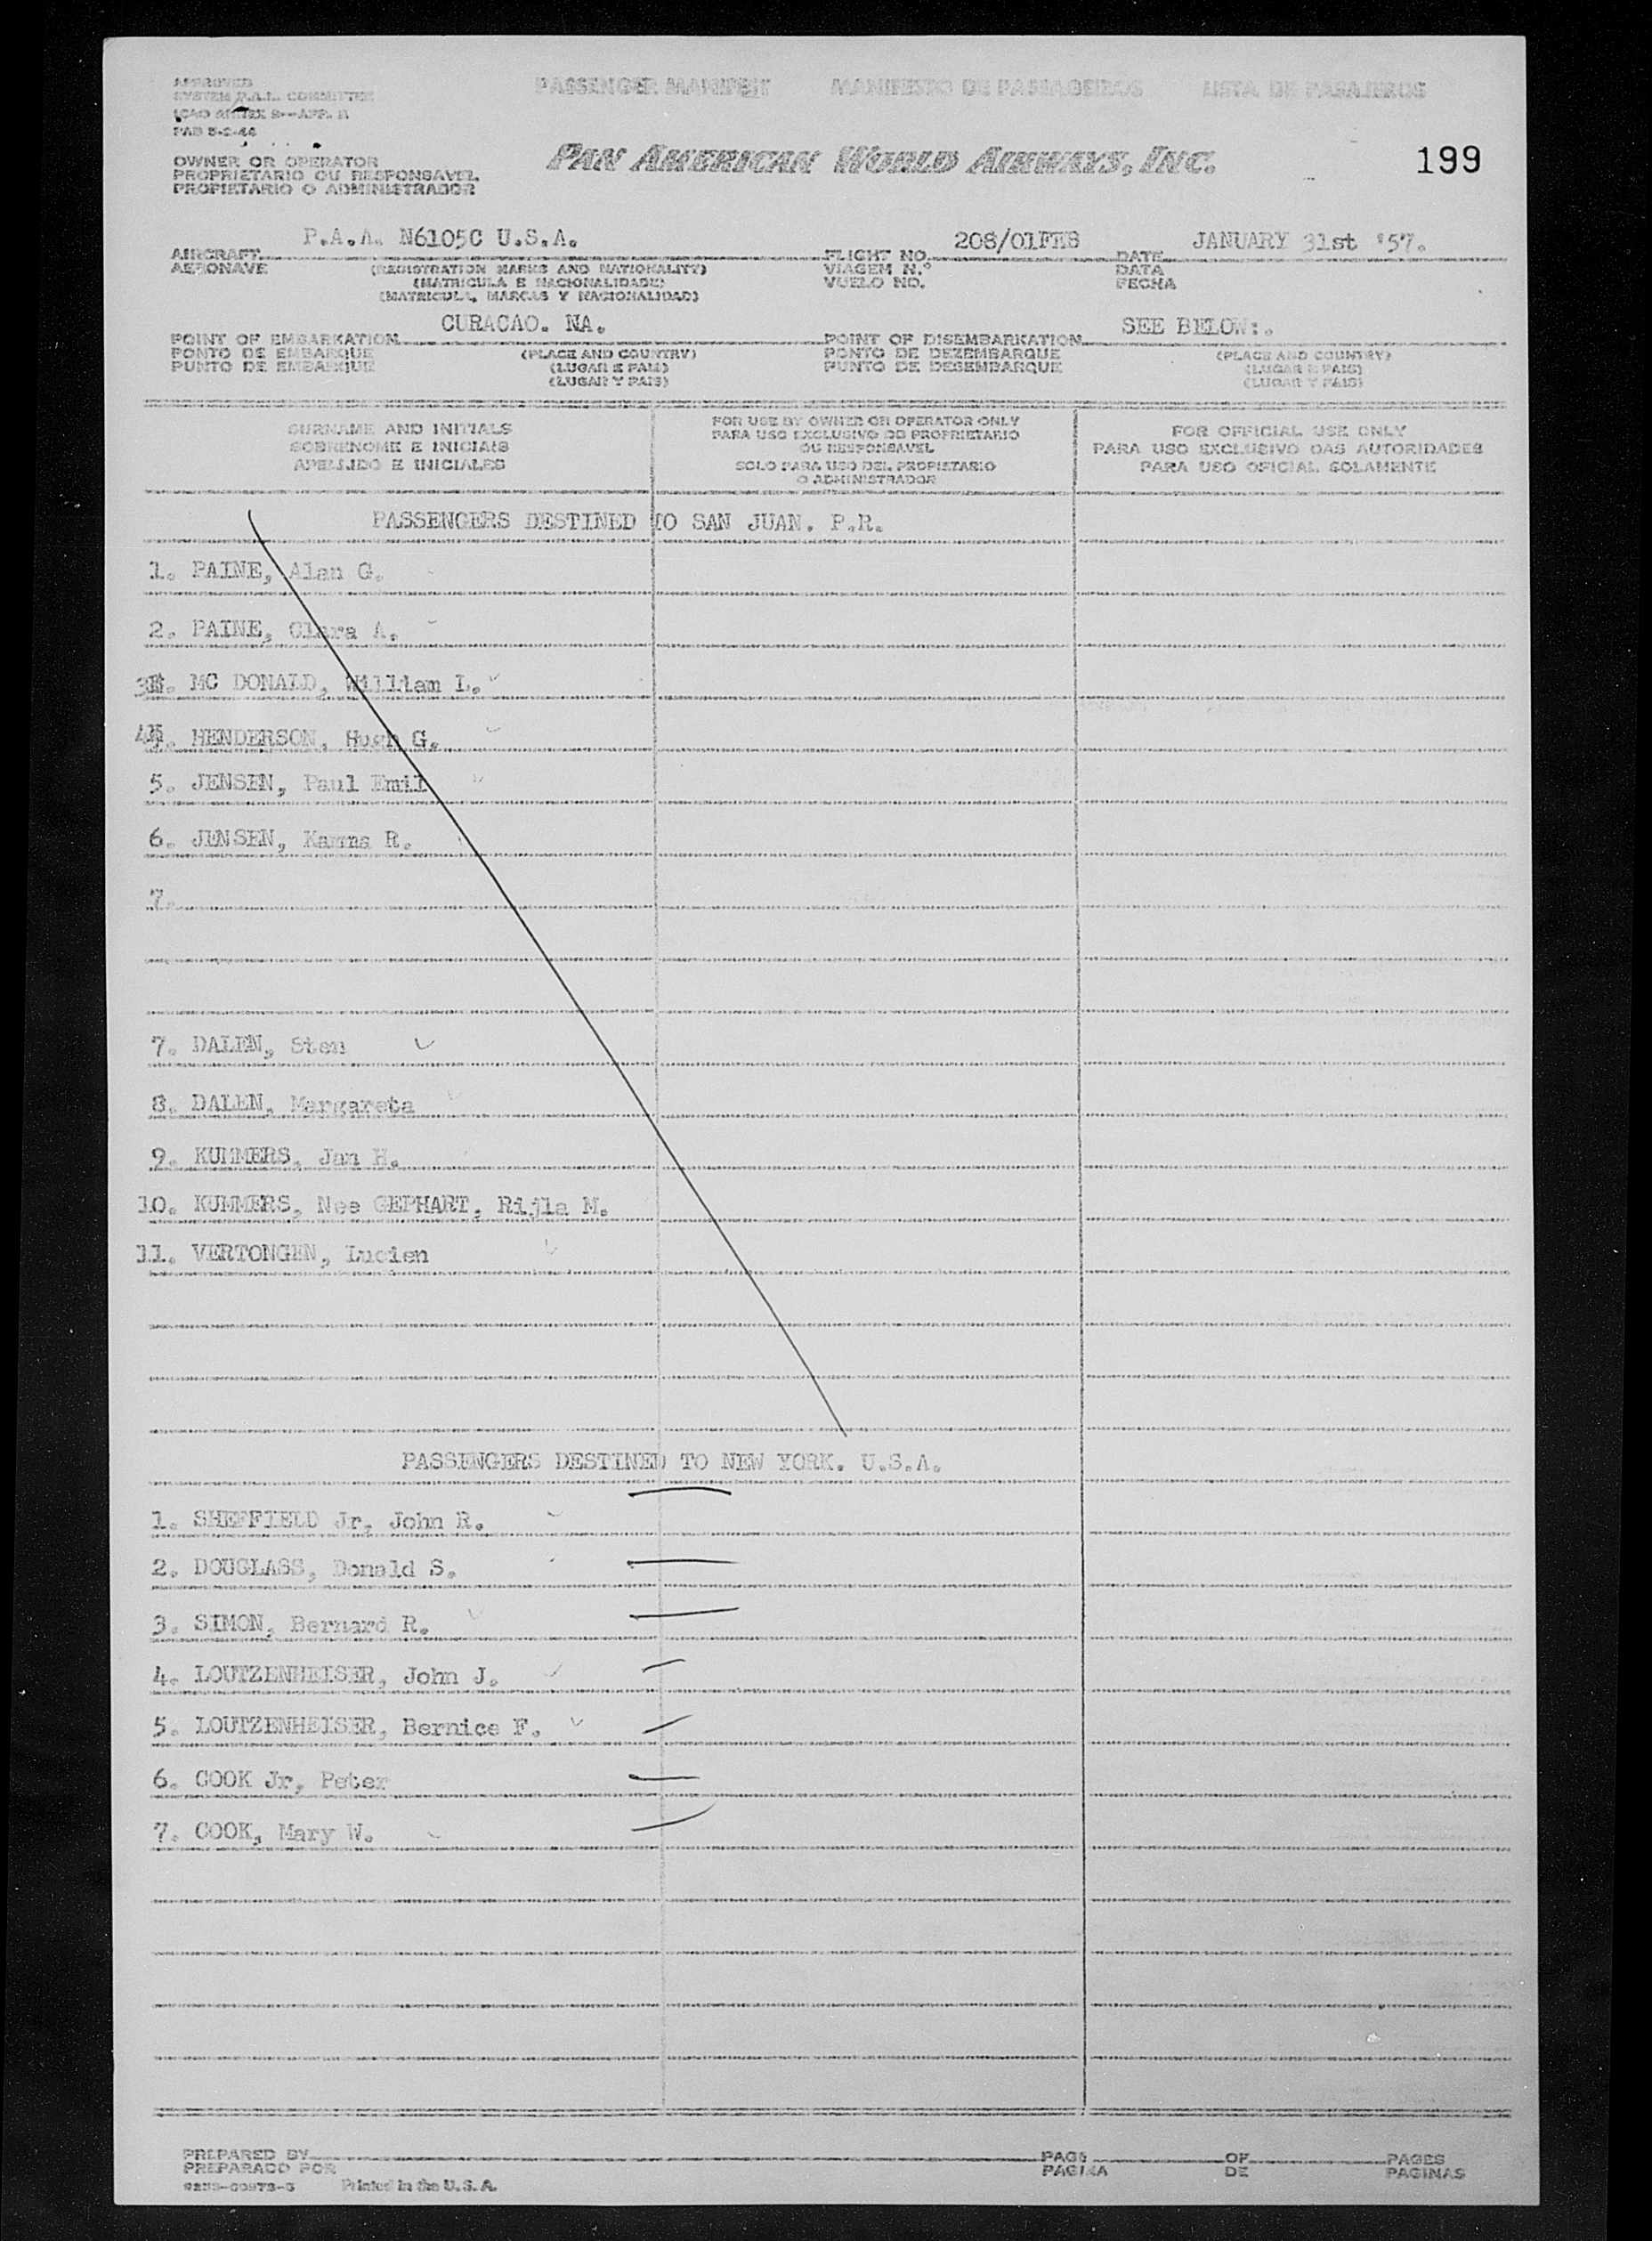 APPROVED
SYSTEM P.A.L. COMMITTEE
ICAO ANNEX 9--APP. B
PASSENGER MANIFEST MANIFESTO DE PASSAGEIROS LISTA DE PASAJEROS
OWNER OR OPERATOR
PROPRIETARIO OU RESPONSAVEL
PROPIETARIO O ADMINISTRADOR
PAN AMERICAN WORLD AIRWAYS, INC.
199
AIRCRAFT P.A.A. N6105C U.S.A. FLIGHT NO. 208/01FEB DATE JANUARY 31st '57.
AERONAVE (REGISTRATION MARKS AND NATIONALITY) VIAGEM N.º DATA
(MATRICULA E NACIONALIDADE) VUELO NO. FECHA
(MATRICULA, MARCAS Y NACIONALIDAD)
POINT OF EMBARKATION CURACAO. NA. POINT OF DISEMBARKATION SEE BELOW:.
PONTO DE EMBARQUE (PLACE AND COUNTRY) PONTO DE DEZEMBARQUE (PLACE AND COUNTRY)
PUNTO DE EMBARQUE (LUGAR E PAIS) PUNTO DE DESEMBARQUE (LUGAR E PAIS)
(LUGAR Y PAIS) (LUGAR Y PAIS)
SURNAME AND INITIALS
SOBRENOME E INICIAIS
APELLIDO E INICIALES
FOR USE BY OWNER OR OPERATOR ONLY
PARA USO EXCLUSIVO DO PROPRIETARIO
OU RESPONSAVEL
SOLO PARA USO DEL PROPIETARIO
O ADMINISTRADOR
FOR OFFICIAL USE ONLY
PARA USO EXCLUSIVO DAS AUTORIDADES
PARA USO OFICIAL SOLAMENTE
PASSENGERS DESTINED TO SAN JUAN. P.R.
1. PAINE, Alan G.
2. PAINE, Clara A.
3. MC DONALD, William L.
4. HENDERSON, Hugh G.
5. JENSEN, Paul Emil
6. JENSEN, Karma R.
7.
7. DALEN, Sten
8. DALEN, Margareta
9. KUMMERS, Jan H.
10. KUMMERS, Nee GEPHART, Rijla M.
11. VERTONGEN, Lucien
PASSENGERS DESTINED TO NEW YORK. U.S.A.
1. SHEFFIELD Jr, John R.
2. DOUGLASS, Donald S.
3. SIMON, Bernard R.
4. LOUTZENHEISER, John J.
5. LOUTZENHEISER, Bernice F.
6. COOK Jr, Peter
7. COOK, Mary W.
PREPARED BY PAGE OF PAGES
PREPARADO POR PAGINA DE PAGINAS
Printed in the U.S.A.